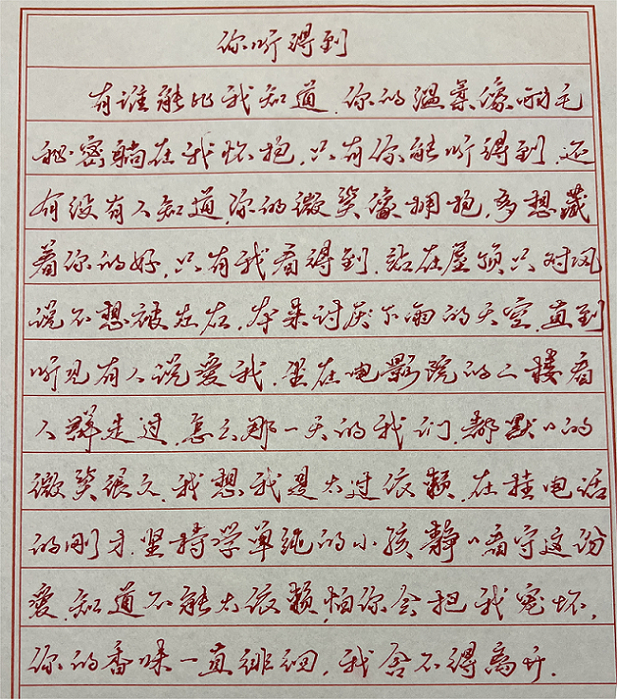 你听得到
有谁能比我知道,你的温柔像羽毛
秘密躺在我怀抱,只有你能听得到,还
有没有人知道,你的微笑像拥抱,多想藏
着你的好,只有我看得到,站在屋顶只对风
说不想被左右,本来讨厌下雨的天空,直到
听见有人说爱我,坐在电影院的二楼看
人群走过,怎么那一天的我们,都默〃的
微笑很久,我想我是太过依赖,在挂电话
的刚才,坚持学单纯的小孩静〃看守这份
爱,知道不能太依赖,怕你会把我宠坏,
你的香味一直徘徊,我舍不得离开.